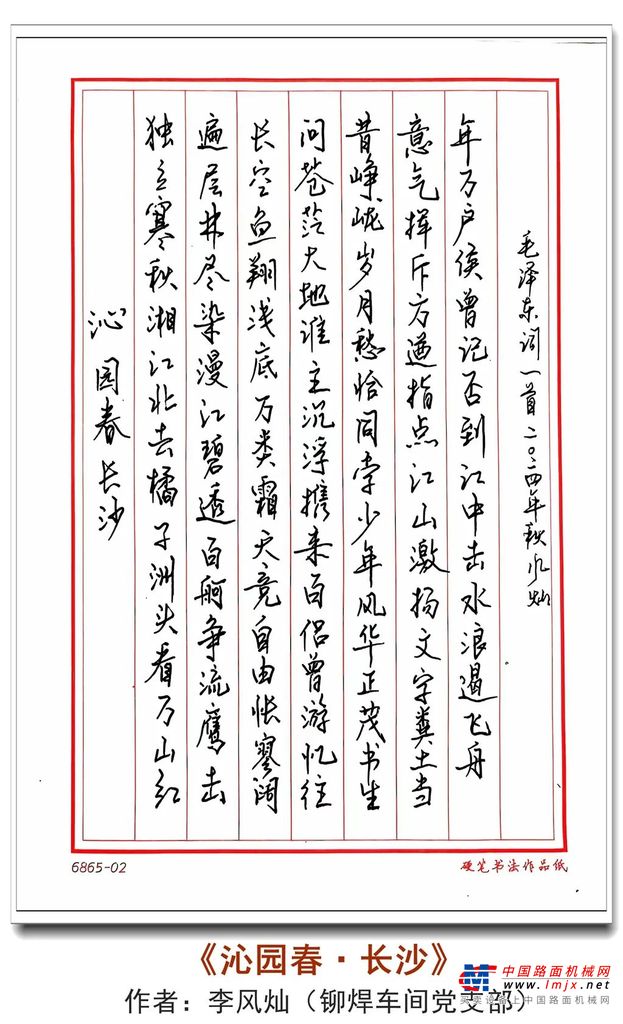 沁园春长沙
独立寒秋湘江北去橘子洲头看万山红
遍层林尽染漫江碧透百舸争流鹰击
长空鱼翔浅底万类霜天竞自由怅寥阔
问苍茫大地谁主沉浮携来百侣曾游忆往
昔峥嵘岁月愁恰同学少年风华正茂书生
意气挥斥方遒指点江山激扬文字粪土当
年万户侯曾记否到江中击水浪遏飞舟
毛泽东词一首二〇二四年秋
6865-02
硬笔书法作品纸
《沁园春·长沙》
作者：李风灿（铆焊车间党支部）
中国路面机械网
www.lmjx.net
买卖设备上中国路面机械网